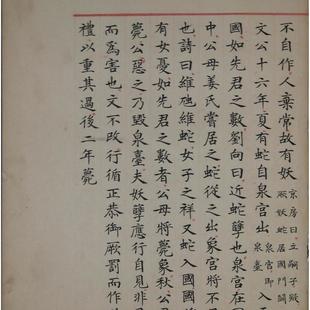 不自作人棄常故有妖京房曰立嗣子疑厥妖蛇居國門鬬
文公十六年夏有蛇自泉宮出泉宮即泉臺入
國如先君之數劉向曰近蛇孽也泉宮在
中公母姜氏嘗居之蛇從之出象宮將不
也詩曰維虺維蛇女子之祥又蛇入國國
有女憂如先君之數者公母將薨象秋公
薨公惡之乃毀泉臺夫妖孽應行自見非
而爲害也文不改行循正恭御厥罰而作
禮以重其過後二年薨